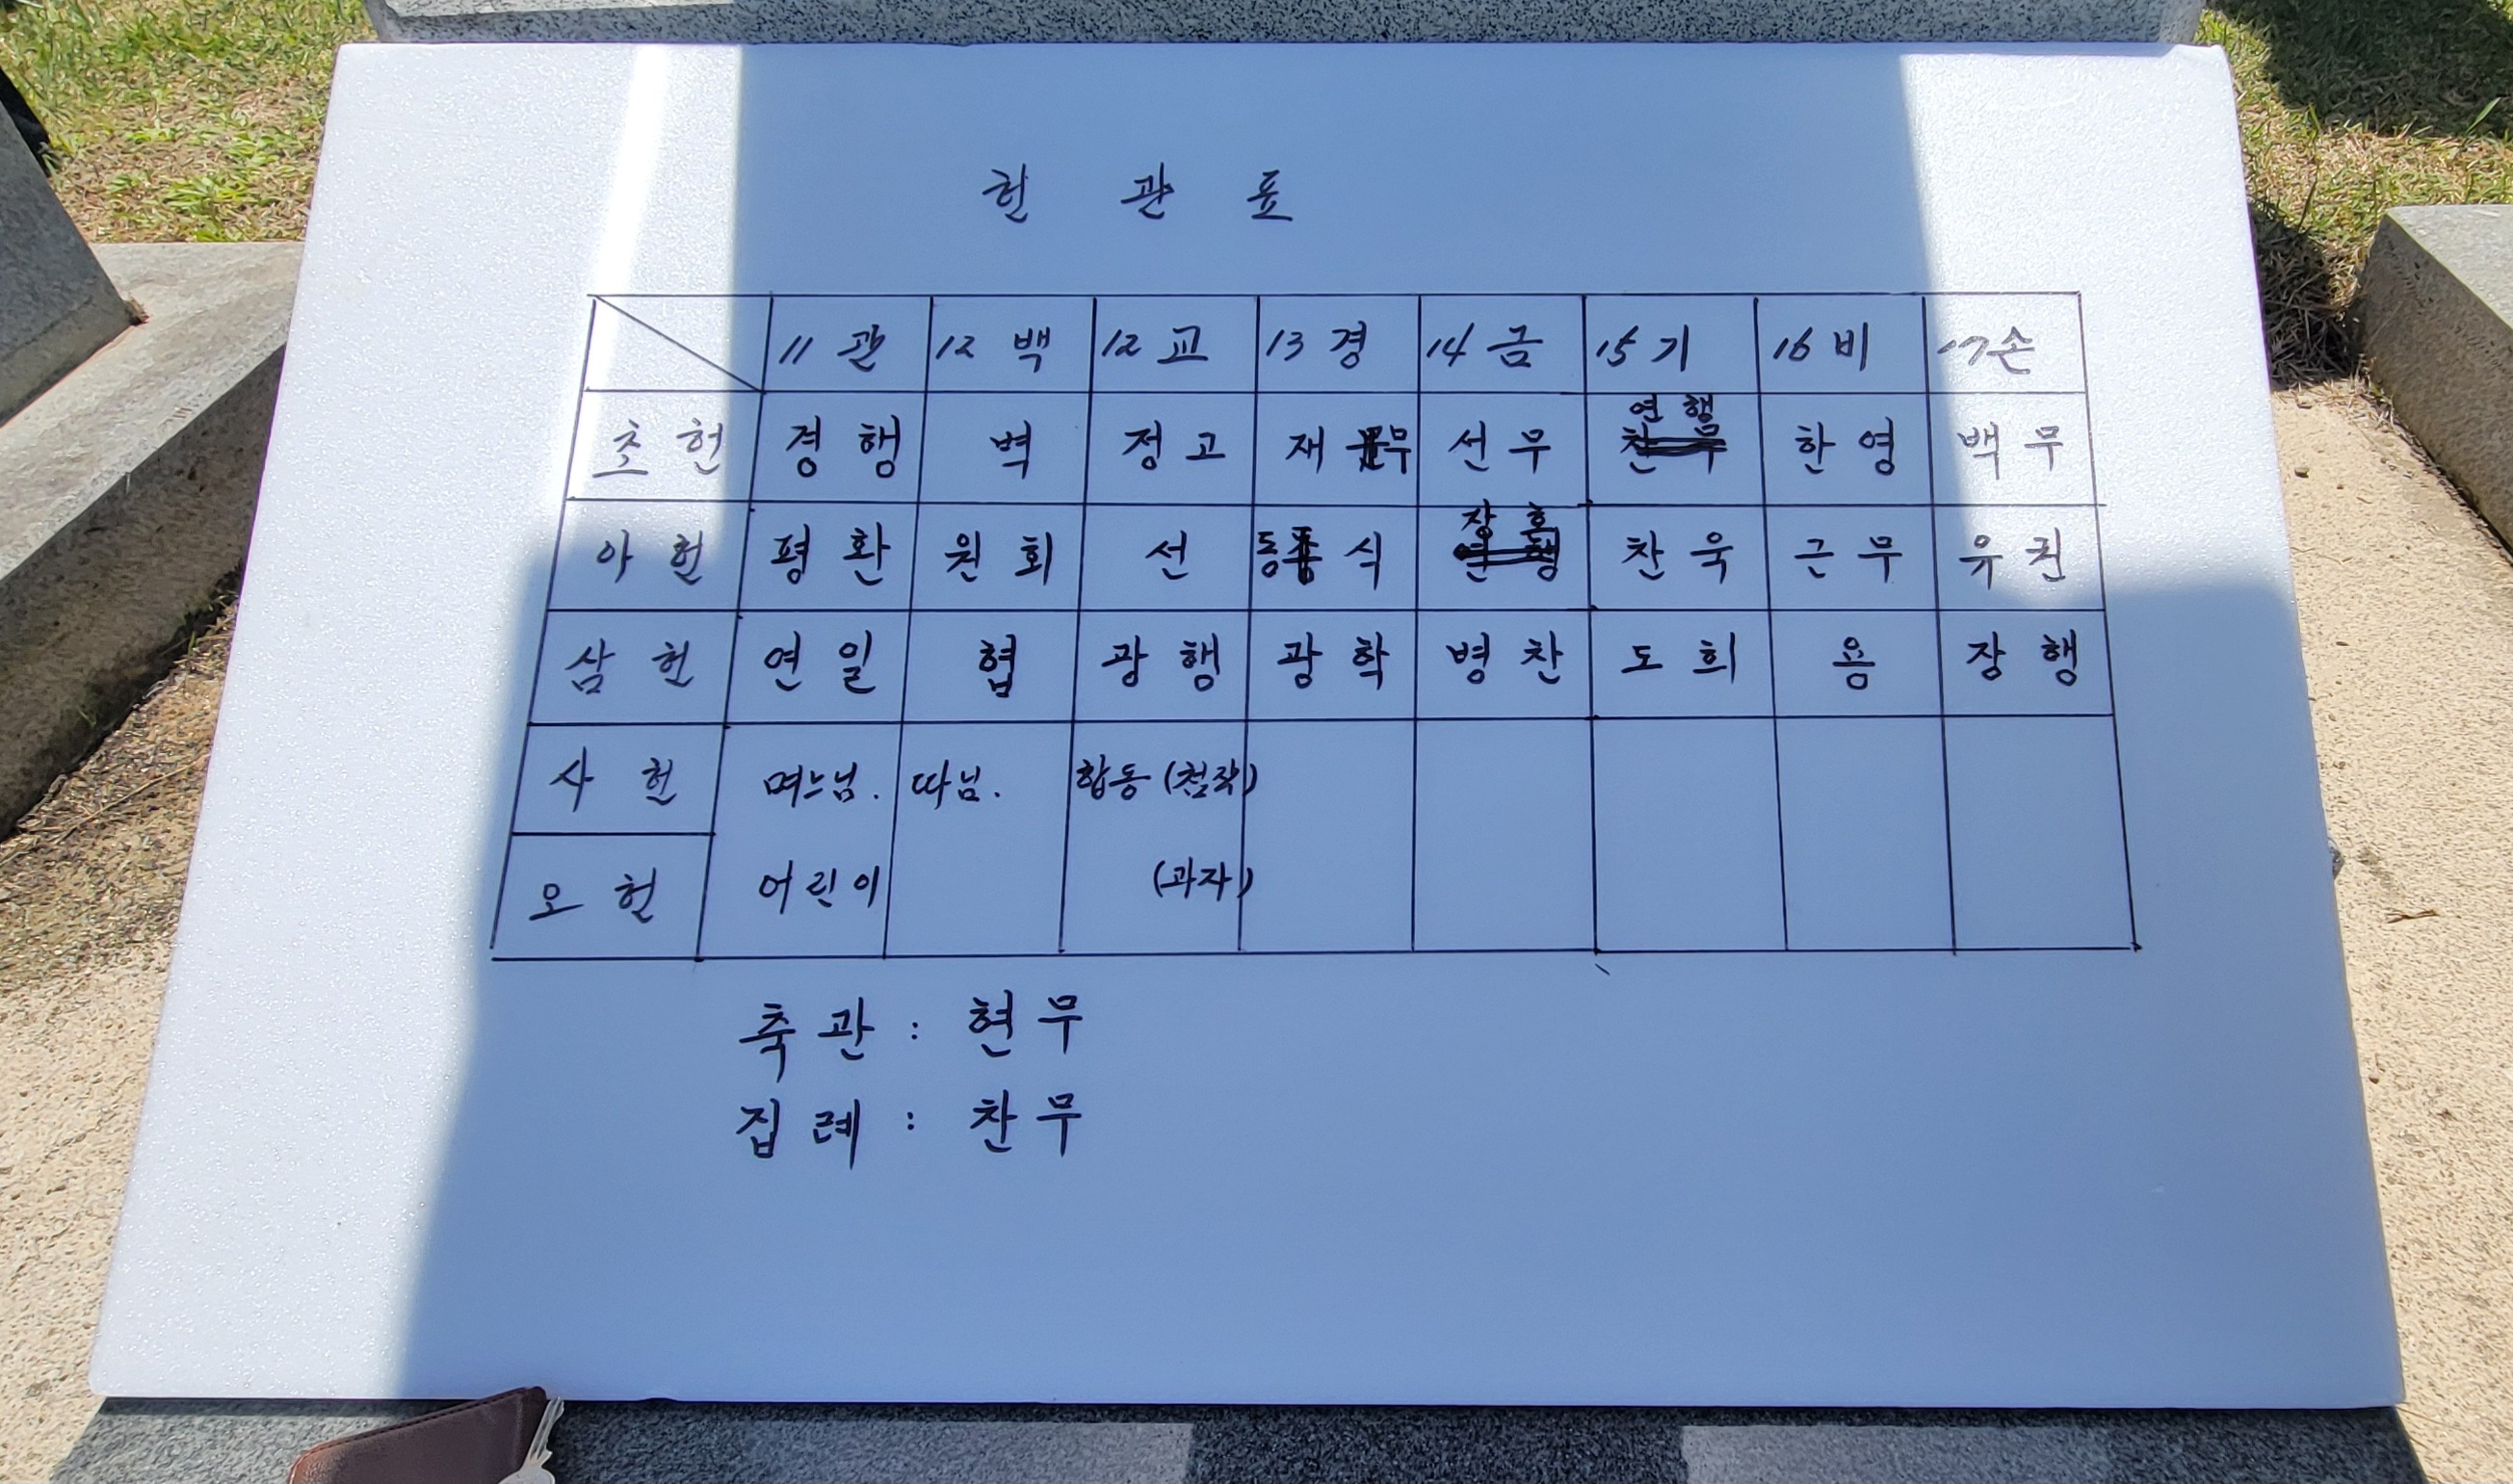 헌 관 표
11 관 12 백 12 교 13 경 14 금 15 기 16 비 17 손
초 헌 경 행 벽 정 고 재 무 선 무 연 행 한 영 백 무
아 헌 평 환 원 회 선 동 식 장 호 찬 욱 근 무 유 권
삼 헌 연 일 협 광 행 광 학 병 찬 도 희 용 장 행
사 헌 며느님. 따님. 합동 (첨작)
오 헌 어린이 (과자)
축 관 : 현 무
집 례 : 찬 무